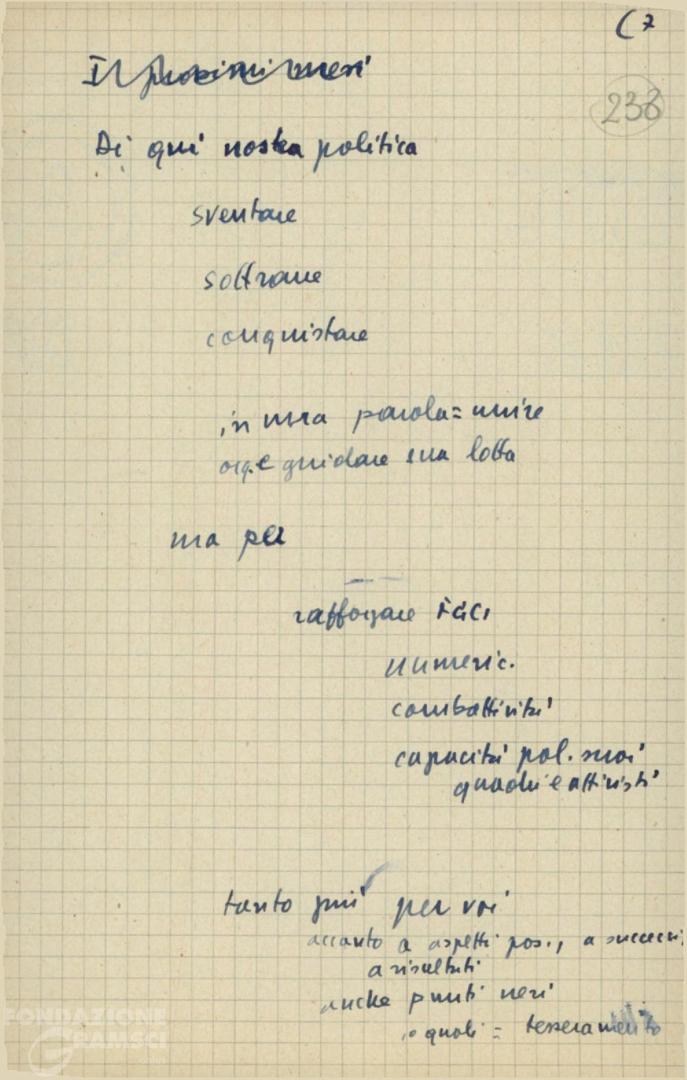 (7
238
I prossimi mesi
Di qui nostra politica
sventare
sottrarre
conquistare
in una parola = unire
org. e guidare sua lotta
ma per
rafforzare FGCI
numeric.
combattività
capacità pol. suoi
quadri e attivisti
tanto più per voi
accanto a aspetti pos., a successi,
a risultati
anche punti neri
quali = tesseramento
FONDAZIONE
GRAMSCI